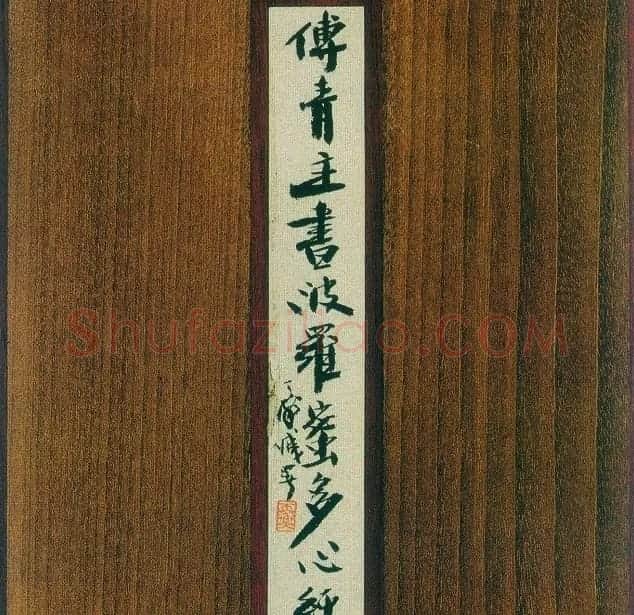 傅青主書波羅蜜多心經
Shufaziliao.COM